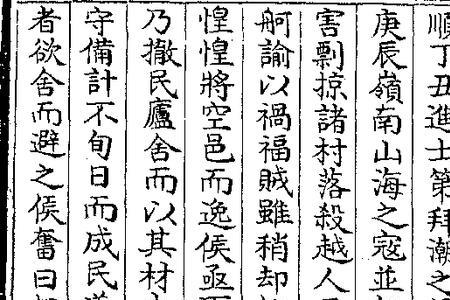 順丁丑進士第拜潮之
庚辰嶺南山海之寇並
害剽掠諸村落殺越人
舸諭以禍福賊雖稍却
惶惶將空邑而逸侯亟
乃撤民廬舍而以其材
守備計不旬日而成民
者欲舍而避之侯奮曰